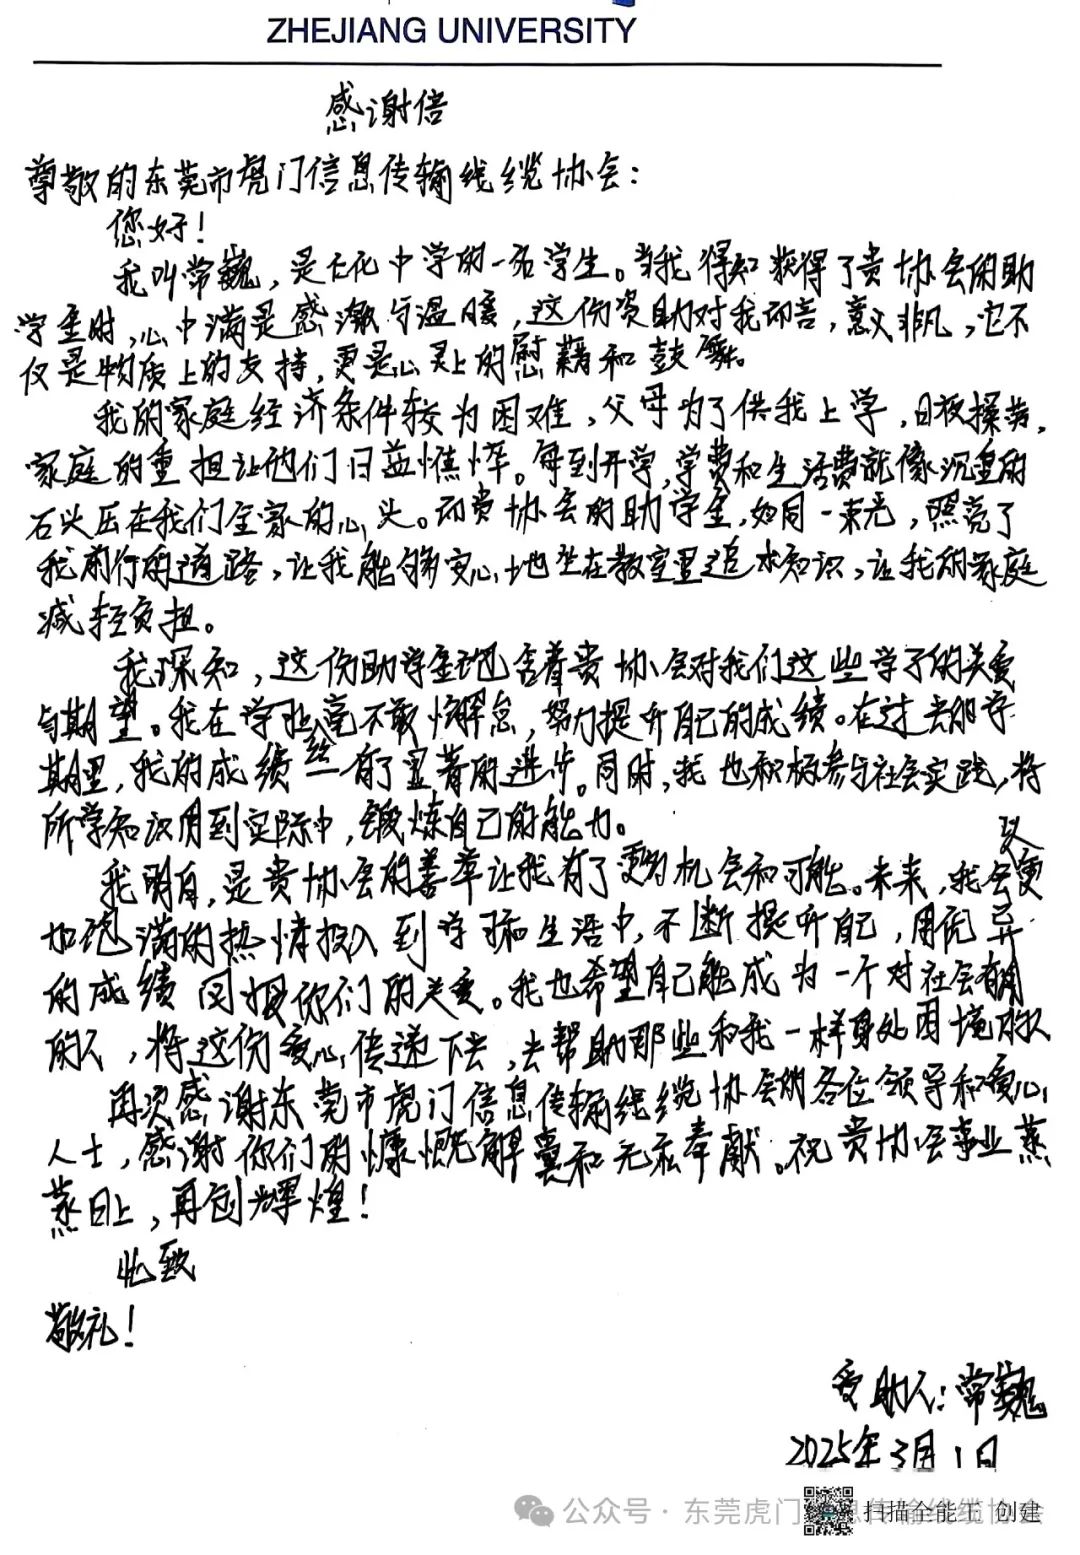 ZHEJIANG UNIVERSITY
感谢信
尊敬的东莞市虎门信息传输线缆协会：
您好！
我叫常巍，是仁化中学的一名学生。当我得知获得了贵协会的助
学金时，心中满是感激与温暖，这份资助对我而言，意义非凡，它不
仅是物质上的支持，更是心灵上的慰藉和鼓舞。
我的家庭经济条件较为困难，父母为了供我上学，日夜操劳，
家庭的重担让他们日益憔悴。每到开学，学费和生活费就像沉重的
石头压在我们全家的心头。而贵协会的助学金，如同一束光，照亮了
我前行的道路，让我能够安心地坐在教室里追求知识，让我的家庭
减轻负担。
我深知，这份助学金饱含着贵协会对我们这些学子的关爱
与期望。我在学业丝毫不敢懈怠，努力提升自己的成绩。在过去的学
期里，我的成绩有了显著的进步。同时，我也积极参与社会实践，将
所学知识用到实际中，锻炼自己的能力。
我明白，是贵协会的善举让我有了更多机会和可能。未来，我会以更
加饱满的热情投入到学习和生活中，不断提升自己，用优异
的成绩回报你们的关爱。我也希望自己能成为一个对社会有用
的人，将这份爱心传递下去，去帮助那些和我一样身处困境的人
再次感谢东莞市虎门信息传输线缆协会的各位领导和爱心
人士，感谢你们的慷慨解囊和无私奉献。祝贵协会事业蒸
蒸日上，再创辉煌！
此致
敬礼！
受助人：常巍
2025年3月1日
公众号·东莞虎门信息传输线缆协会
扫描全能王 创建